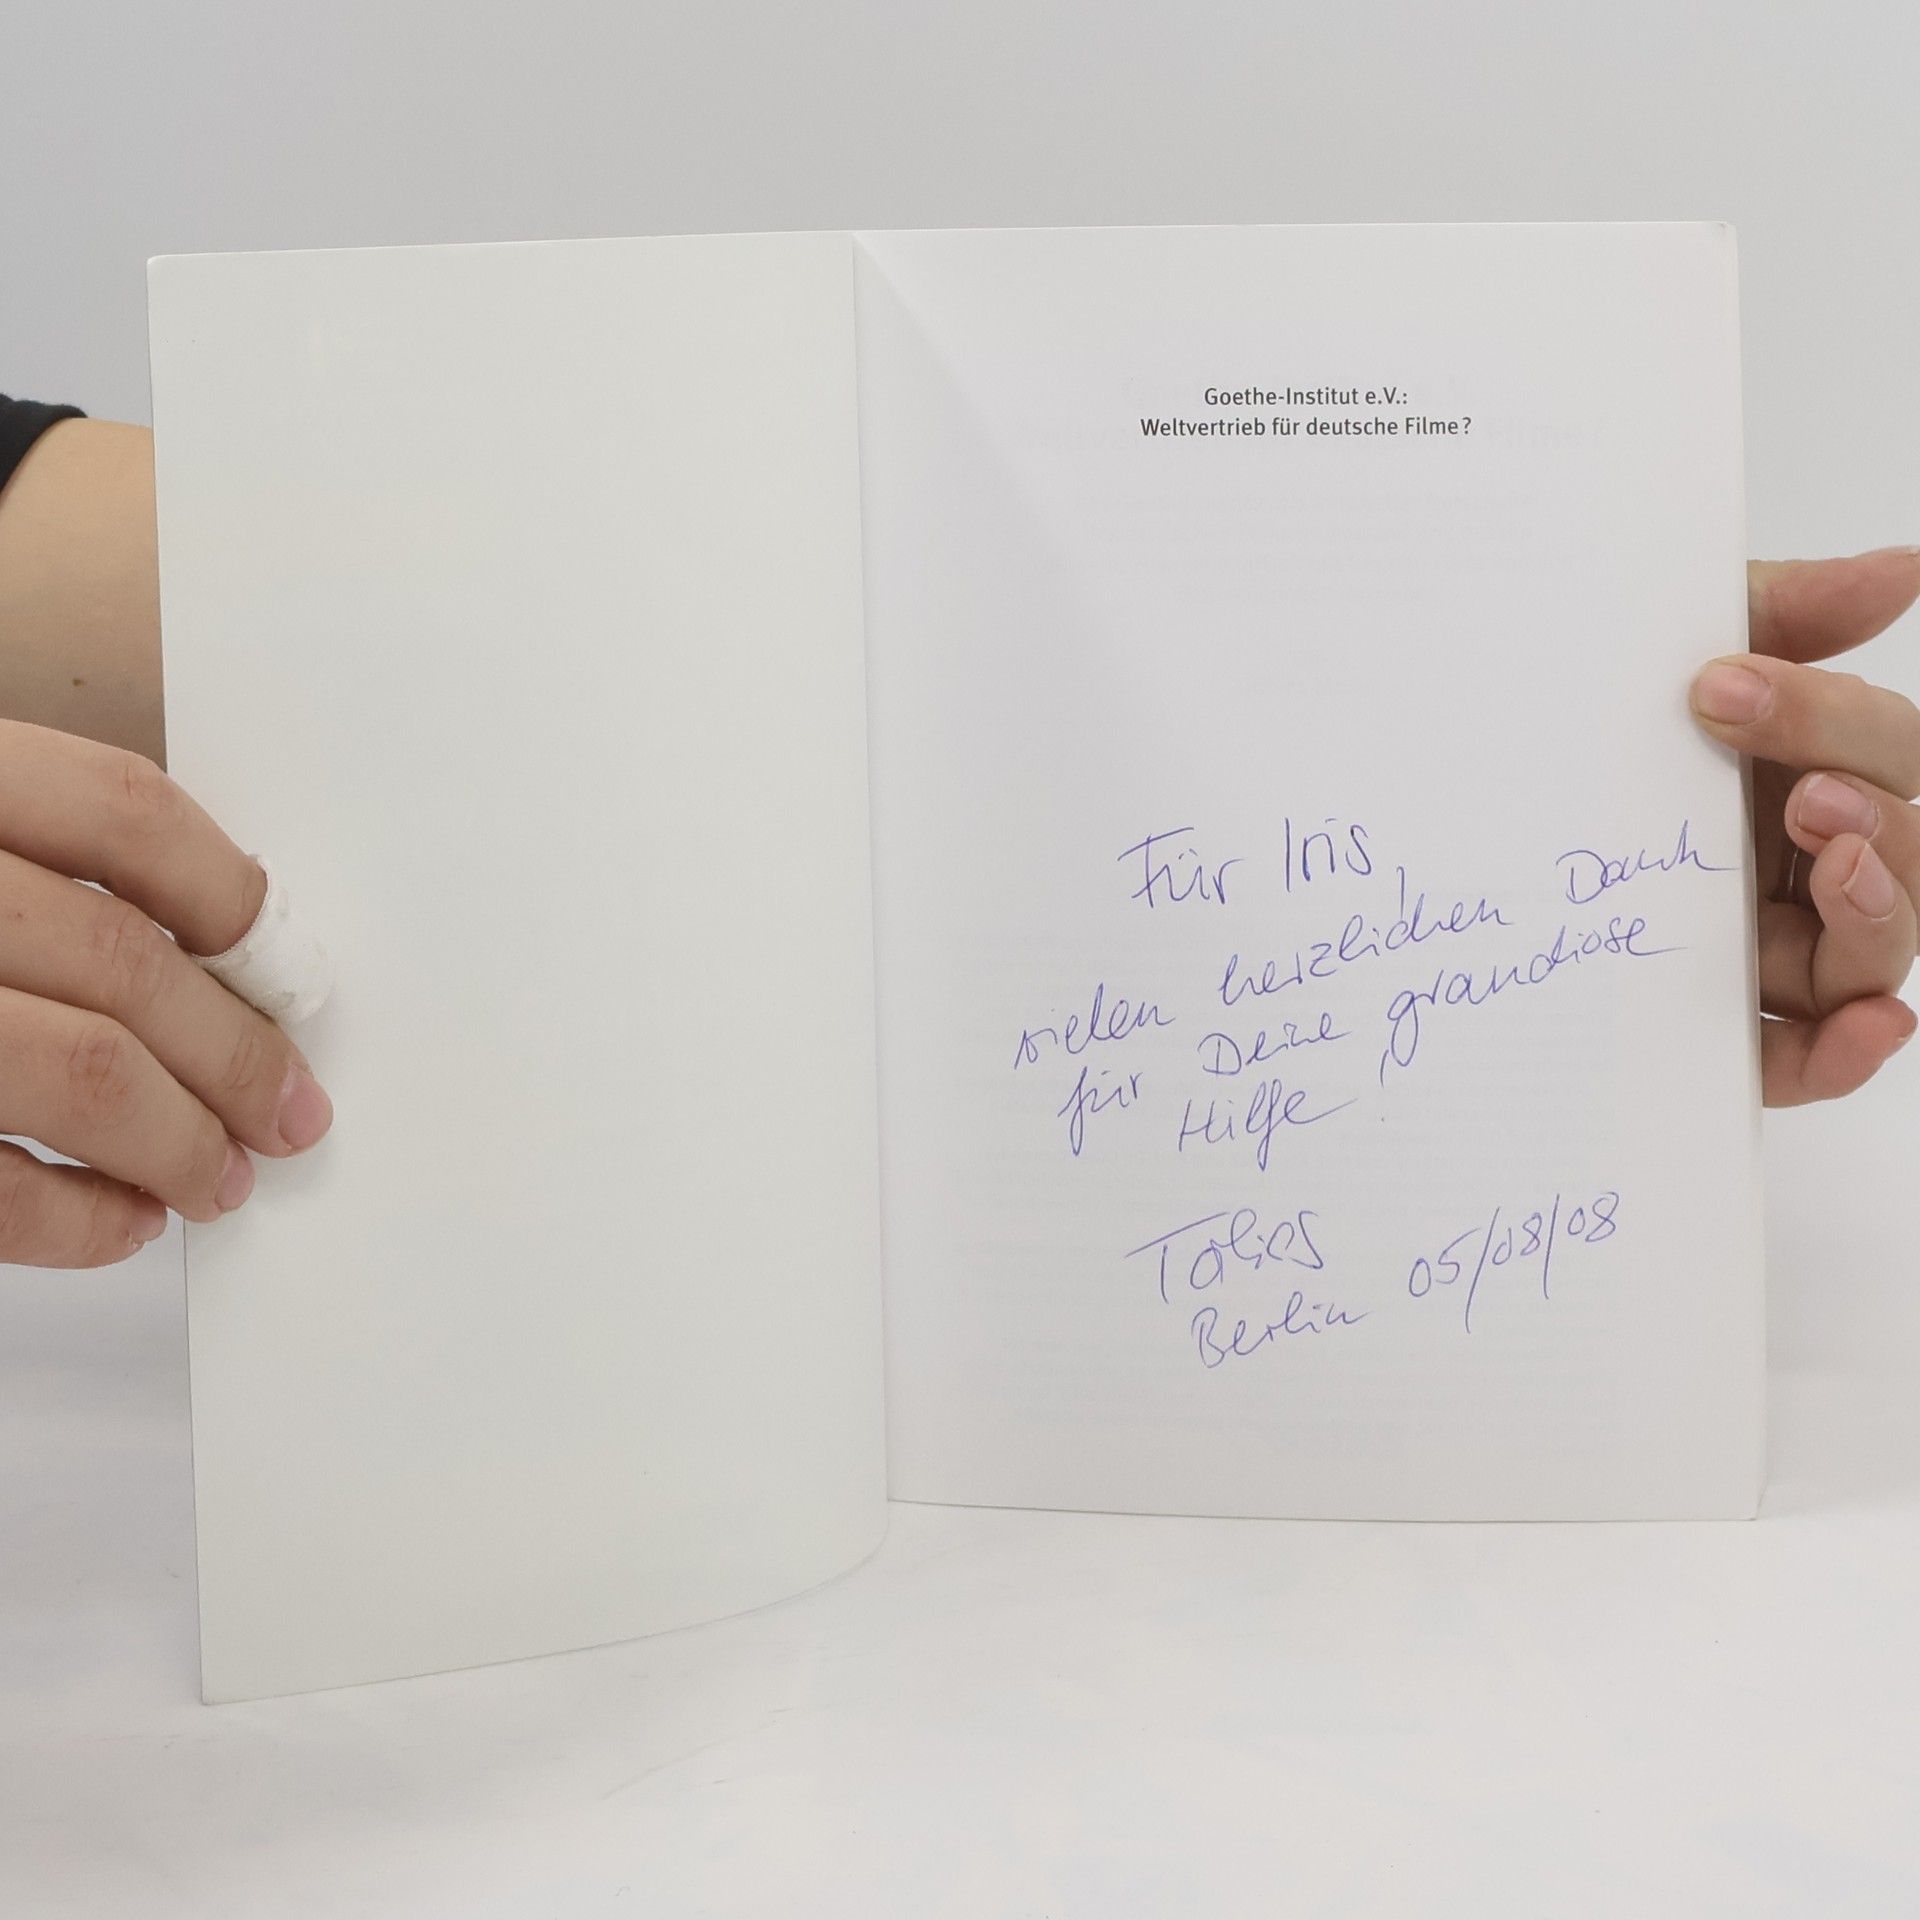 Goethe-Institut e.V.:
Weltvertrieb für deutsche Filme?
Für Iris,
vielen herzlichen Dank
für Deine grandiose
Hilfe!
Tobias
Berlin 05/08/08